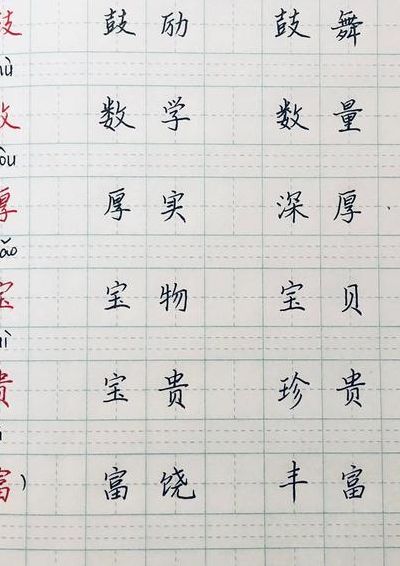 鼓 鼓励 鼓舞
ù
数 数学 数量
òu
厚 厚实 深厚
ǎo
宝 宝物 宝贝
ì
贵 宝贵 珍贵
富) 富饶 丰富